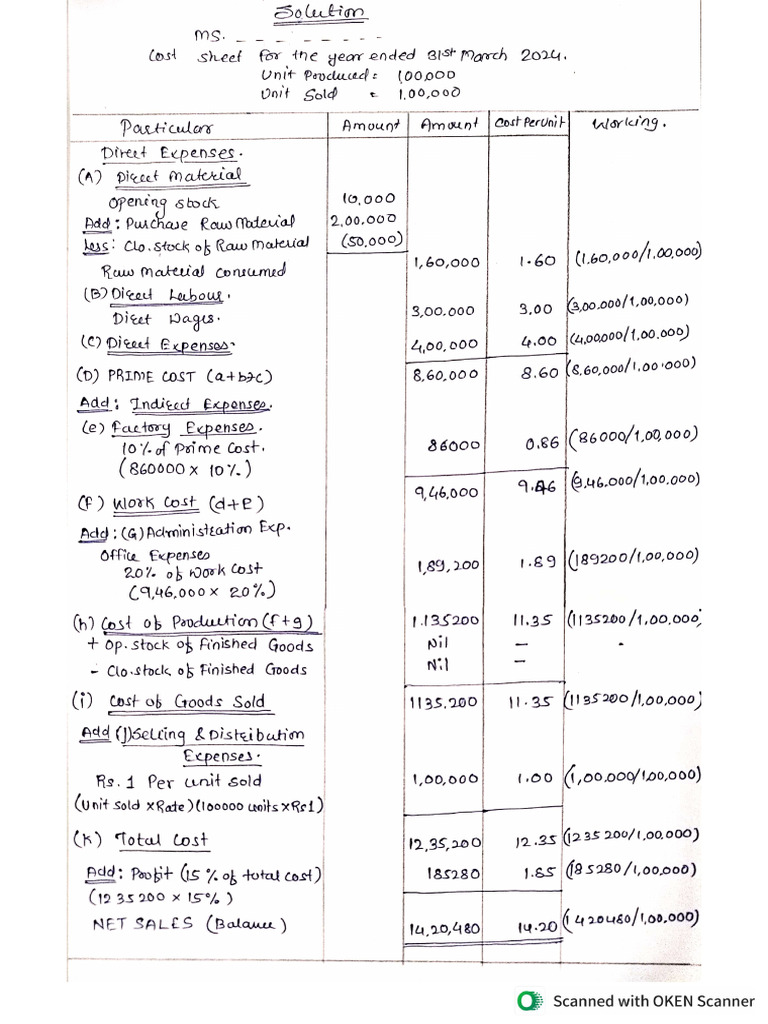 Solution
MS. _ _ _ _ _ _ _ _ _
Cost sheet for the year ended 31st March 2024.
Unit Produced = 1,00,000
Unit Sold = 1,00,000
Particular Amount Amount Cost Per Unit Working.
Direct Expenses.
(A) Direct Material
Opening Stock 10,000
Add: Purchase Raw Material 2,00,000
Less: Clo. Stock of Raw Material (50,000)
Raw Material Consumed 1,60,000 1.60 (1,60,000/1,00,000)
(B) Direct Labour.
Direct Wages. 3,00,000 3.00 (3,00,000/1,00,000)
(C) Direct Expenses. 4,00,000 4.00 (4,00,000/1,00,000)
(D) PRIME COST (a+b+c) 8,60,000 8.60 (8,60,000/1,00,000)
Add: Indirect Expenses.
(e) Factory Expenses.
10% of Prime Cost. 86000 0.86 (86000/1,00,000)
(860000 x 10%)
(F) Work Cost (d+e) 9,46,000 9.46 (9,46,000/1,00,000)
Add: (G) Administration Exp.
Office Expenses
20% of Work Cost 1,89,200 1.89 (189200/1,00,000)
(9,46,000 x 20%)
(h) Cost of Production (f+g) 1,135200 11.35 (1135200/1,00,000)
+ Op. stock of Finished Goods Nil – -
- Clo. stock of Finished Goods Nil –
(i) Cost of Goods Sold 1135,200 11.35 (1135200/1,00,000)
Add (J) Selling & Distribution
Expenses.
Rs. 1 Per unit sold 1,00,000 1.00 (1,00,000/1,00,000)
(Unit sold x Rate) (100000 units x Rs1)
(K) Total Cost 12,35,200 12.35 (1235200/1,00,000)
Add: Profit (15% of total cost) 185280 1.85 (185280/1,00,000)
(1235200 x 15%)
NET SALES (Balance) 14,20,480 14.20 (1420480/1,00,000)
Scanned with OKEN Scanner